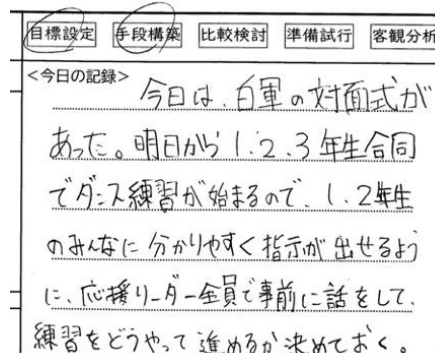 目標設定 手段構築 比較検討 準備試行 客観分析
<今日の記録>
今日は、白軍の対面式が
あった。明日から1.2.3年生合同
でダンス練習が始まるので、1.2年生
のみんなに分かりやすく指示が出せるよう
に、応援リーダー全員で事前に話をして、
練習をどうやって進めるか決めておく。